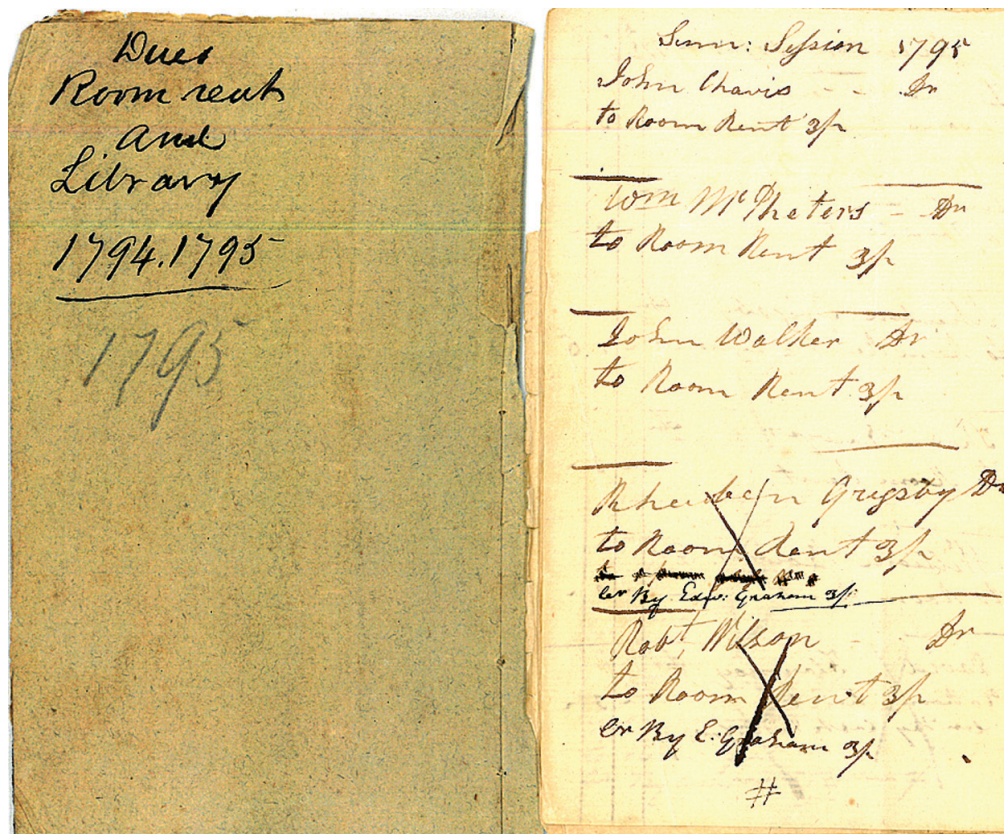 Dues
Room rent
and
Library
1794.1795
1795
Sumr: Session 1795
John Chavis - - Dr
to Room Rent 3/
Wm McPheters - Dr
to Room Rent 3/
John Walker Dr
to Room Rent 3/
Rheuben Grigsby Dr
to Room Rent 3/
Cr By Edw: Graham 3/
Robt. Wilson Dr
to Room Rent 3/
Cr By E: Graham 3/
#